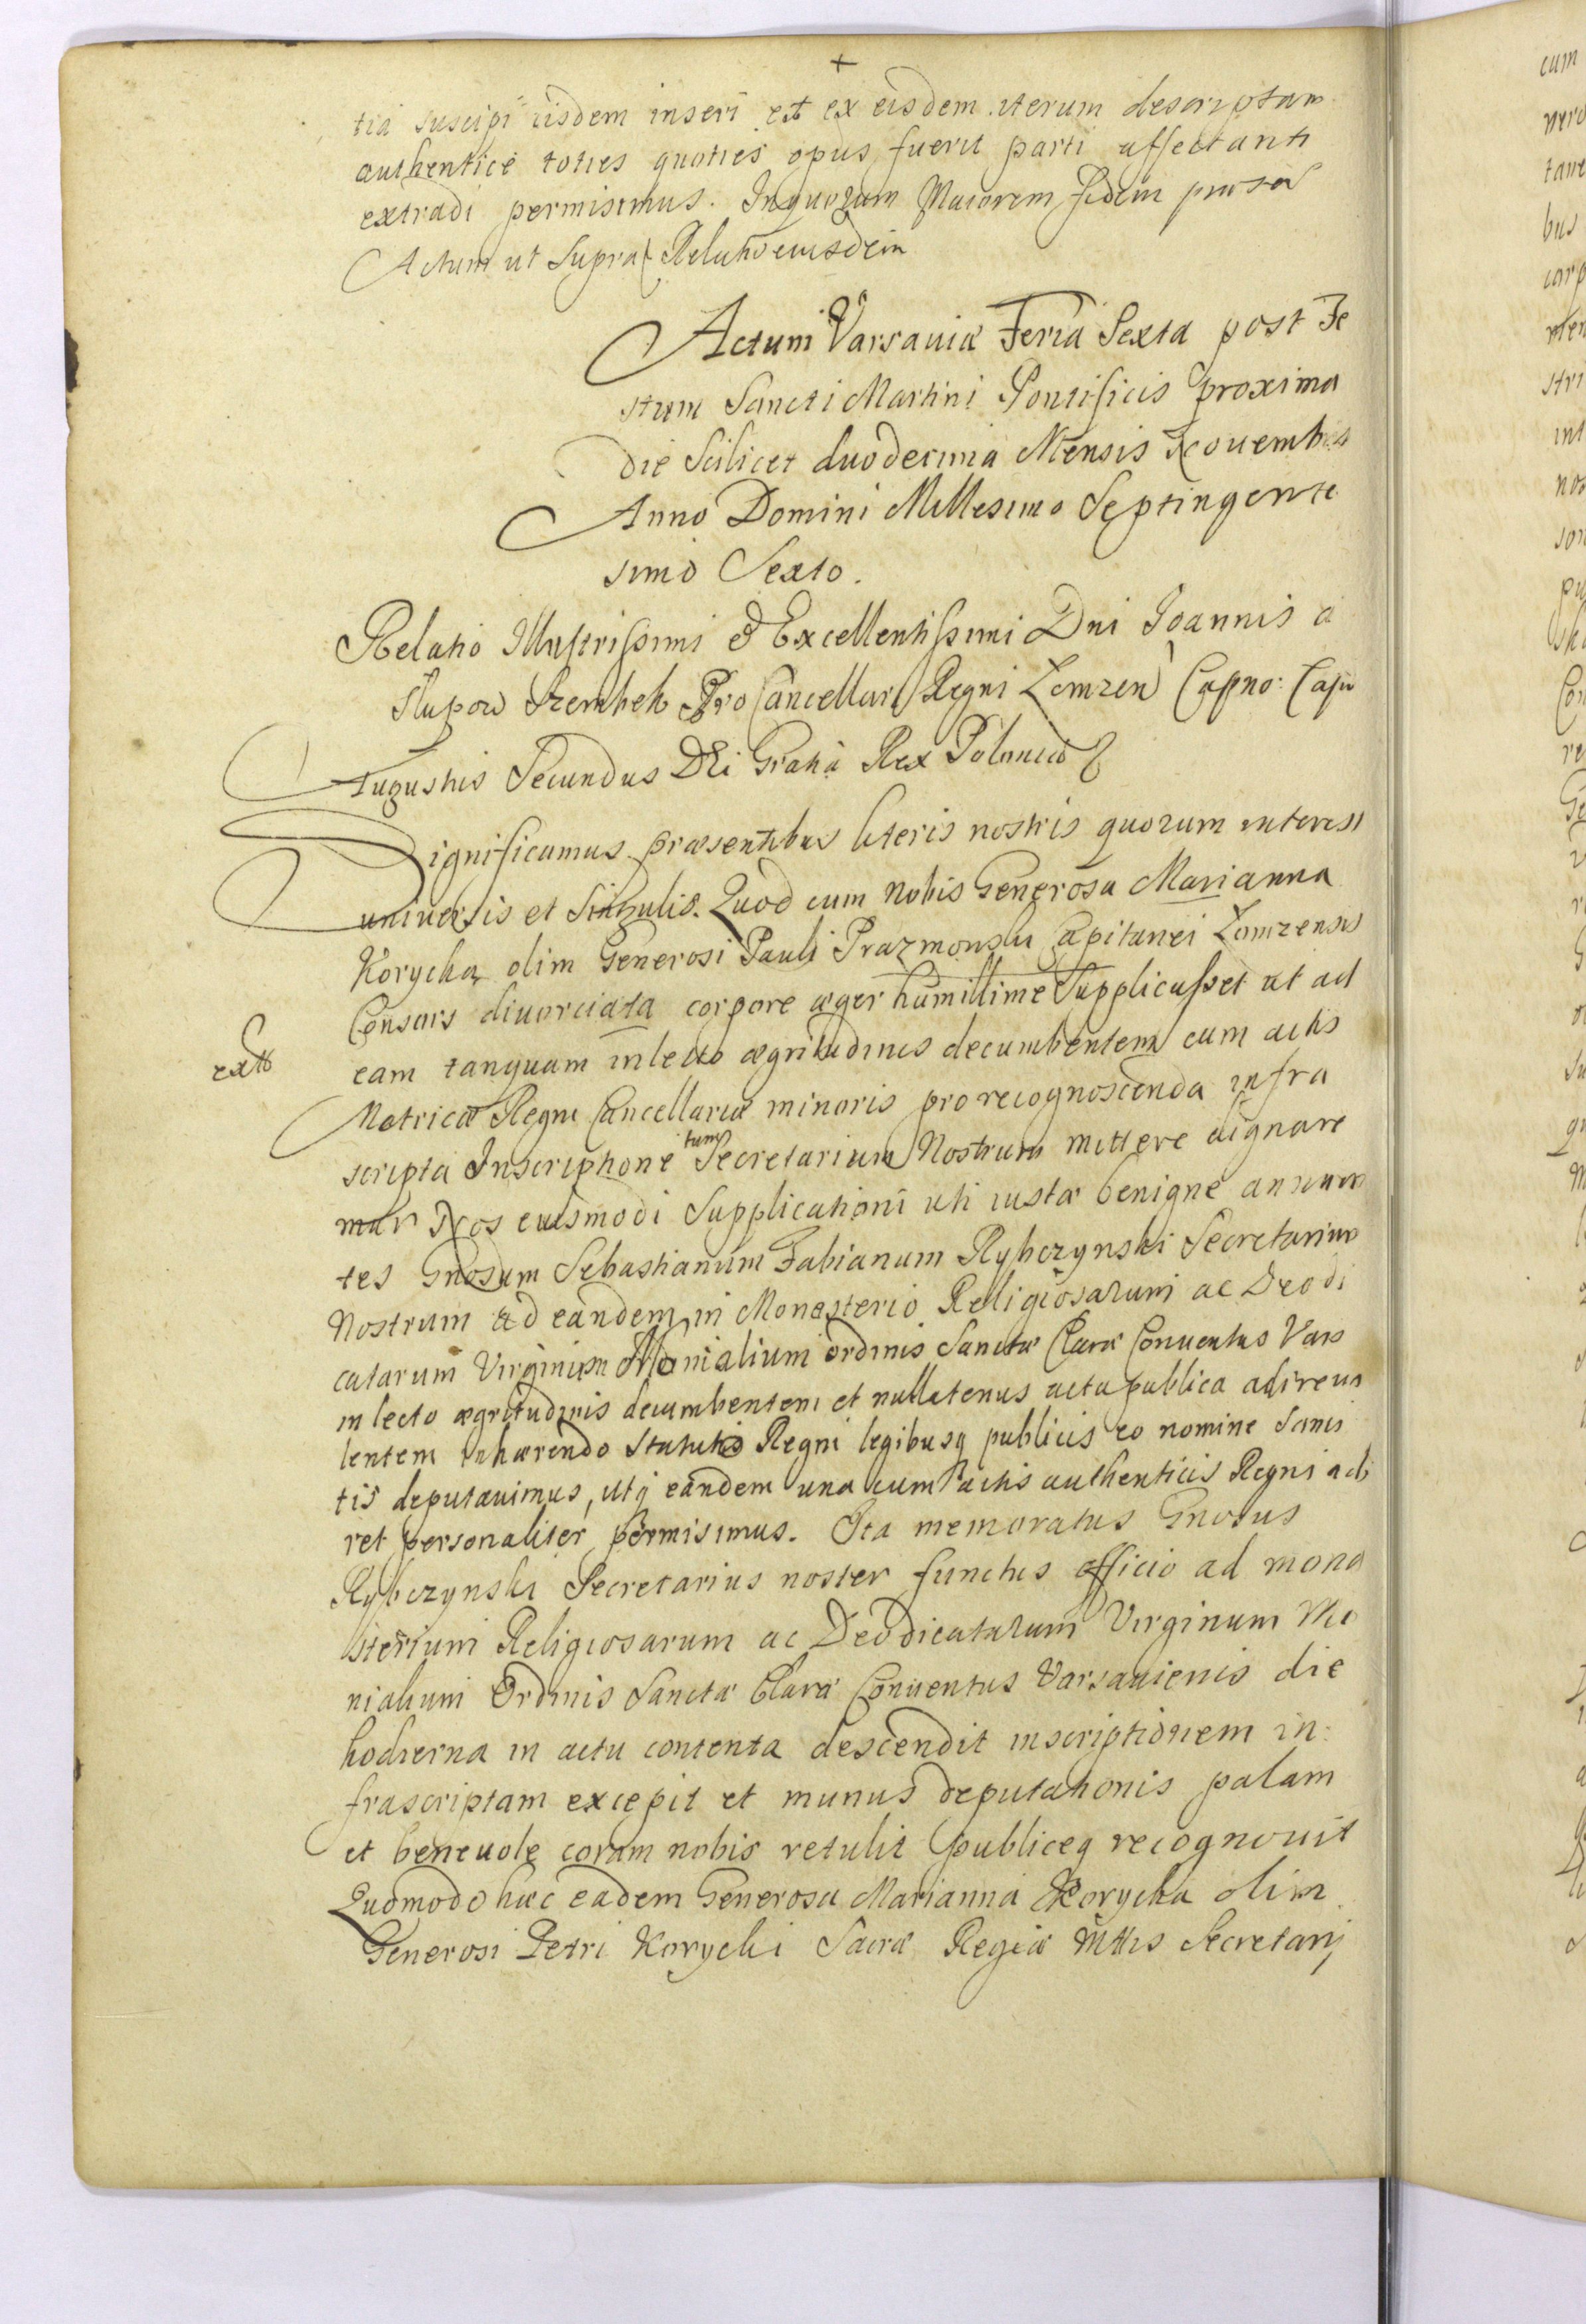 +
tia suscipi iisdem inseri et ex eisdem iterum descriptam
authenticè toties quoties opus fuerit parti affectanti
extradi permisimus. In quorum Maiorem fidem
Actum ut Supra Relatio eiusdem
Actum Varsaviæ Feria Sexta post Fe
stum Sancti Martini Pontificis proxima
die Scilicet duodecima Mensis Nouembris
Anno Domini Millesimo Septingente
simo Sexto.
Relatio Illustrissimi & Excellentissimi Dni Ioannis à
Slupow Szembek Pro Cancellarij Regni Lomzen
Augustus Secundus DEi Gratia Rex Poloniæ
Significamus præsentibus literis nostris quorum interest
universis et Singulis. Quod cum nobis Generosa Marianna
Korycka olim Generosi Pauli Prazmowski Capitanei Lomzensis
Consors divorciata corpore æger humillime Supplicasset ut ad
extt
eam tanquam in lecto ægritudinis decumbentem cum actis
Metricæ Regni Cancellariæ minoris pro recognoscenda infra
scripta Inscriptione tum Secretarium Nostrum mittere dignare
mur Nos eiusmodi Supplicationi uti iustæ benigne annuen
tes Gnosum Sebastianum Fabianum Rybczynski Secretarium
Nostrum ad eandem in Monasterio Religiosarum ac Deo di
catarum Virginum Monialium ordinis Sanctæ Claræ Conuentus Vars
in lecto ægritudinis decumbentem et nullatenus acta publica adire va
lentem inhærendo Statutis Regni legibusq publicis eo nomine Sanci
tis deputauimus, utq eandem una cum actis authenticis Regni adi
ret personaliter permisimus. Ita memoratus Gnosus
Rybczynski Secretarius noster functus officio ad mona
sterium Religiosarum ac Deo dicatarum Virginum Mo
nialium Ordinis Sanctæ Claræ Conuentus Varsauienis die
hodierna in actu contenta descendit inscriptionem in:
frascriptam excepit et munus deputationis palam
et beneuole coram nobis retulit publiceq recognouit
Quomodo hæc eadem Generosa Marianna Korycka olim
Generosi Petri Korycki Sacræ Regiæ Mttis Secretarij